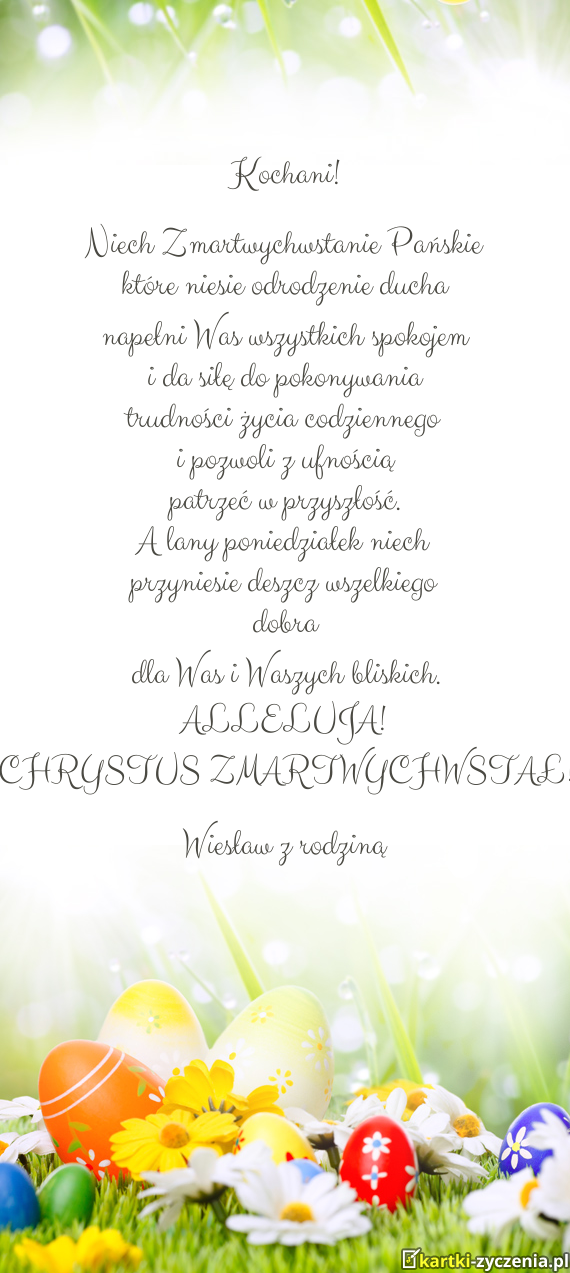 Kochani!
Niech Zmartwychwstanie Pańskie
które niesie odrodzenie ducha
napełni Was wszystkich spokojem
i da siłę do pokonywania
trudności życia codziennego
i pozwoli z ufnością
patrzeć w przyszłość.
A lany poniedziałek niech
przyniesie deszcz wszelkiego
dobra
dla Was i Waszych bliskich.
ALLELUJA!
CHRYSTUS ZMARTWYCHWSTAŁ!
Wiesław z rodziną
kartki-zyczenia.pl